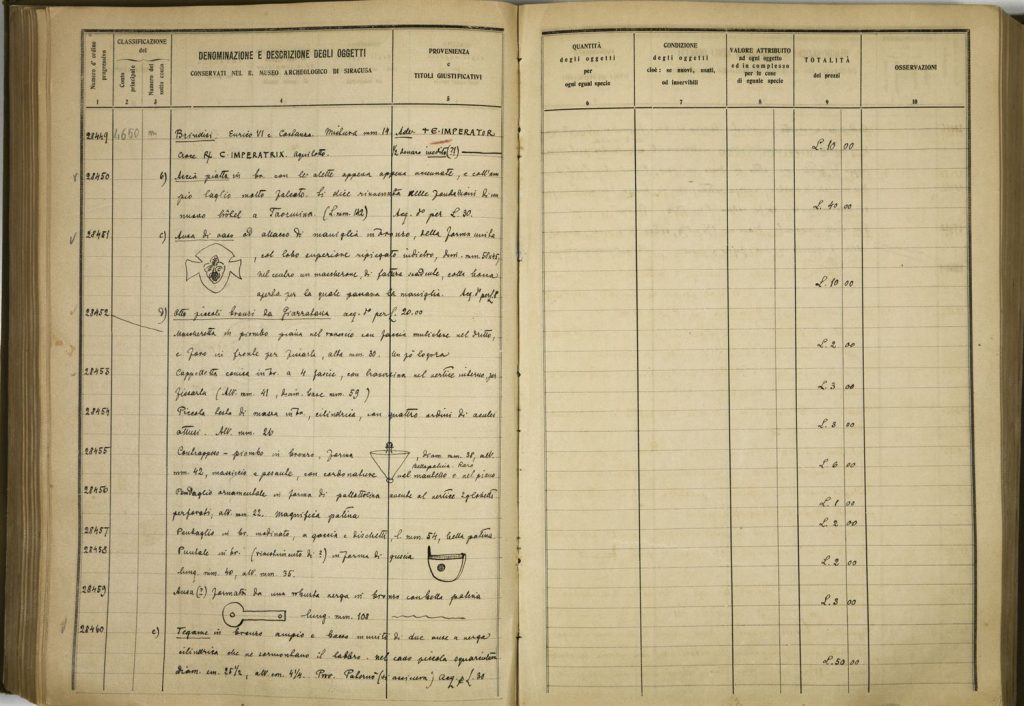 Numero d'ordine progressivo
CLASSIFICAZIONE del
Conto principale
Numero del sotto conto
DENOMINAZIONE E DESCRIZIONE DEGLI OGGETTI
CONSERVATI NEL R. MUSEO ARCHEOLOGICO DI SIRACUSA
PROVENIENZA
e
TITOLI GIUSTIFICATIVI
1 2 3 4 5
28449 4650 m Brindisi Enrico VI e Costanza. Mistura mm 19 Adv. + E·IMPERATOR
Croce R/ C·IMPERATRIX. Aquilotto. ½ denaro inedito (?)
28450 b) Ascia piatta in br. con le alette appena appena accennate, e coll'am
pio taglio molto falcato. Si dice rinvenuta nelle fondazioni di un
nuovo hôtel a Taormina. (L. mm. 142) Acq. per L. 30.
28451 c) Ansa di vaso od attacco di maniglia in bronzo, della forma unita
, col lobo superiore ripiegato indietro, dim. mm.
nel centro un mascherone, di fattura scadente, colla bocca
aperta per la quale passava la maniglia. Acq. per L.
28452 d) Otto piccoli bronzi da Giarratana acq. per L. 20.00
Mascheretta in piombo piana nel rovescio con faccia muliebre nel dritto,
e foro in fronte per fissarla, alta mm. 30. Un pò logora
28453 Cappelletto conico in br. a 4 fascie, con traversina nel vertice interno, per
fissarlo (Alt. mm. 41, diam. base mm. 59)
28454 Piccola testa di mazza in br., cilindrica, con quattro ordini di aculei
ottusi. Alt. mm. 26
28455 Contrappeso - piombo in bronzo, forma , diam. mm. 38, alt.
mm. 42, massiccio e pesante, con cordonature nel mantello e nel piano
bella patina. Raro
28456 Pendaglio ornamentale in forma di pallottolina avente al vertice 2 globetti
perforati, alt. mm. 22. Magnifica patina
28457 Pendaglio in br. modinato, a goccia e dischetti, l. mm. 54, bella patina
28458 Puntale in br. (rivestimento di ?) in forma di guscio
lung. mm. 40, alt. mm. 35.
28459 Ansa (?) formata da una robusta verga in bronzo con bella patina
lung. mm. 108
28460 e) Tegame in bronzo ampio e basso munito di due anse a verga
cilindrica che ne sormontano il labbro. nel caso piccola squarcitura
diam. cm. 25½, alt. cm. 4¼. Prov. Paternò (si assicura) Acq. p. L. 30
QUANTITÀ
degli oggetti
per
ogni egual specie
CONDIZIONE
degli oggetti
cioè: se nuovi, usati,
od inservibili
VALORE ATTRIBUITO
ad ogni oggetto
ed in complesso
per le cose
di eguale specie
TOTALITÀ
dei prezzi
OSSERVAZIONI
6 7 8 9 10
L. 10 00
L. 40 00
L. 10 00
L. 2 00
L. 3 00
L. 3 00
L. 6 00
L. 1 00
L. 2 00
L. 2 00
L. 3 00
L. 50 00